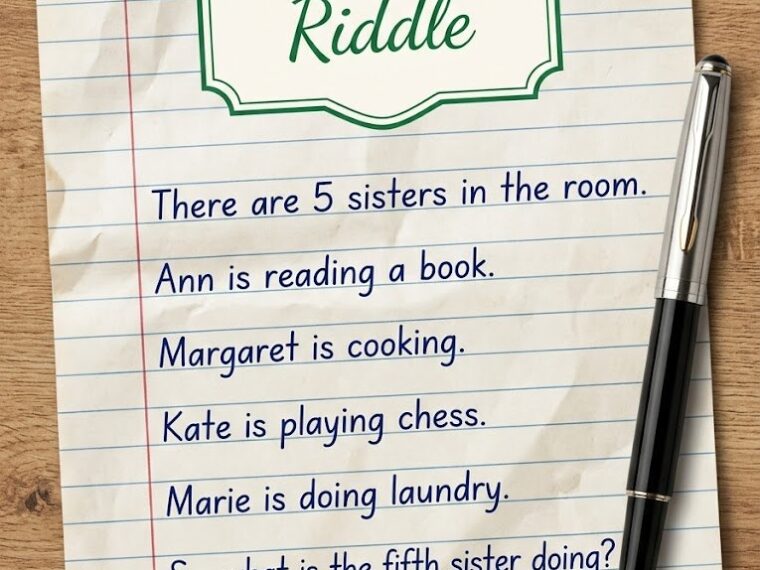 Riddle
There are 5 sisters in the room.
Ann is reading a book.
Margaret is cooking.
Kate is playing chess.
Marie is doing laundry.
So what is the fifth sister doing?